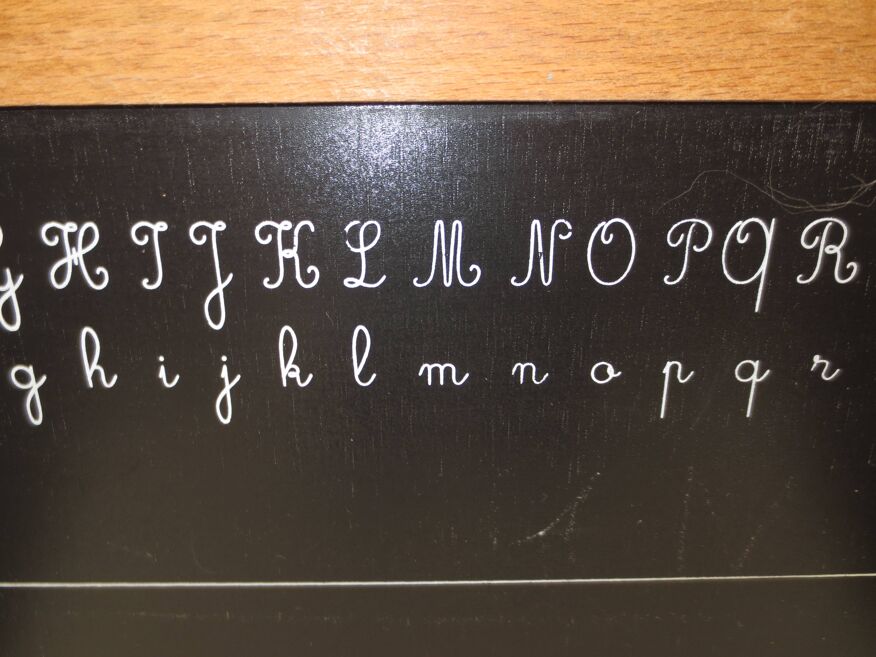 G H I J K L M N O P Q R
g h i j k l m n o p q r